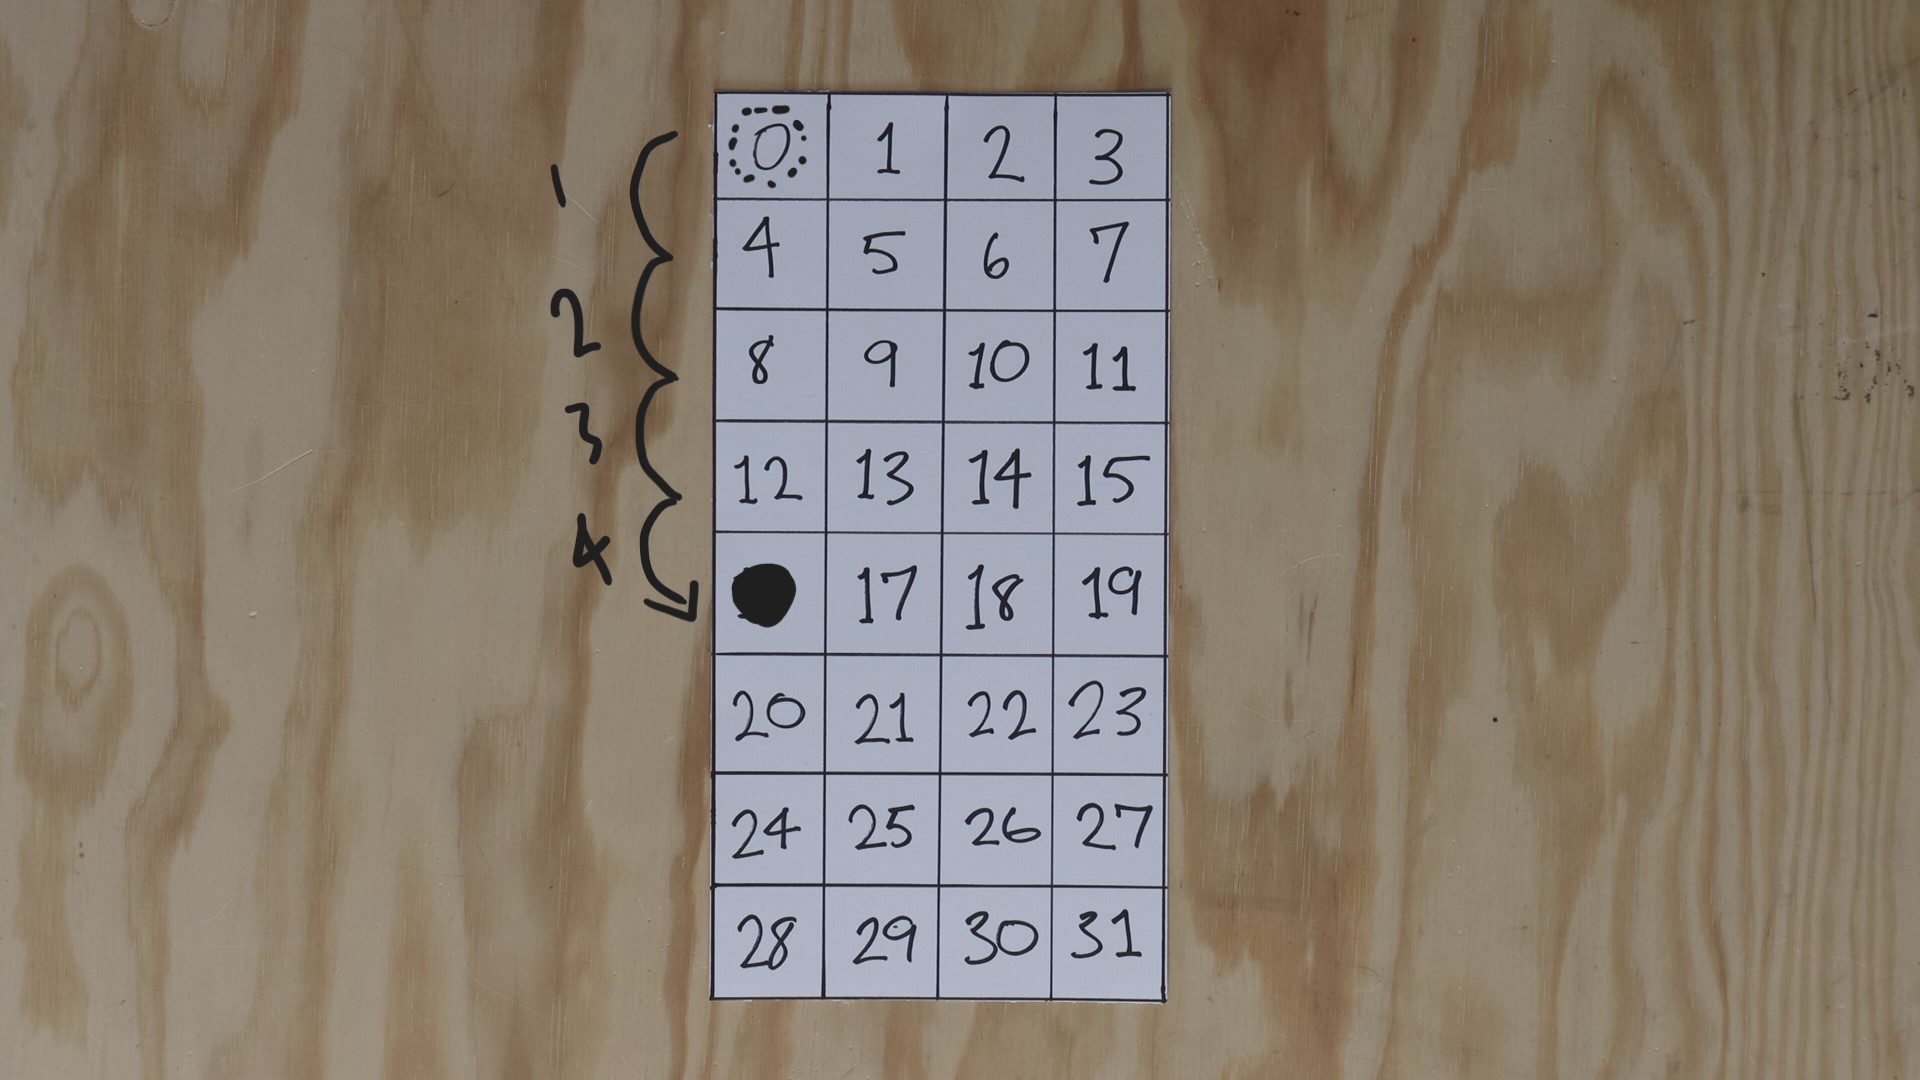 0 1 2 3
1
4 5 6 7
2
8 9 10 11
3
12 13 14 15
4
17 18 19
20 21 22 23
24 25 26 27
28 29 30 31